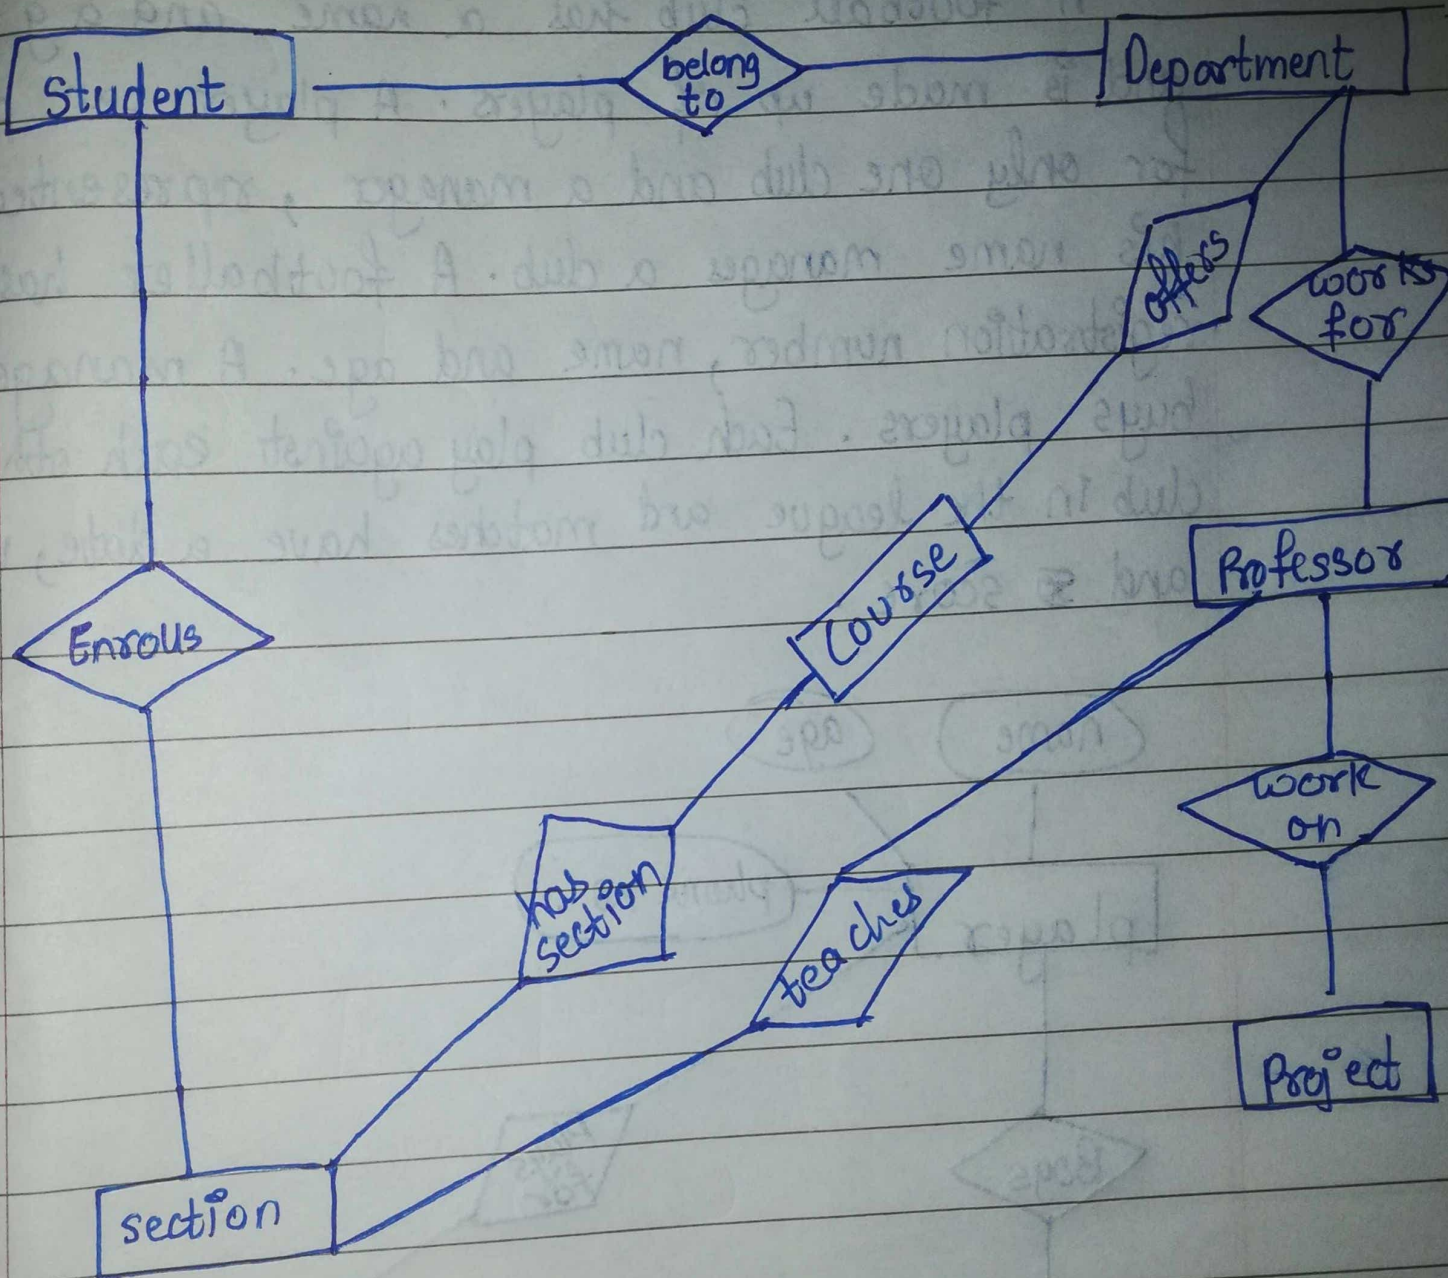 Student
belong
to
Department
offers
works
for
Course
Professor
Enrolls
work
on
has
section
teaches
Project
section